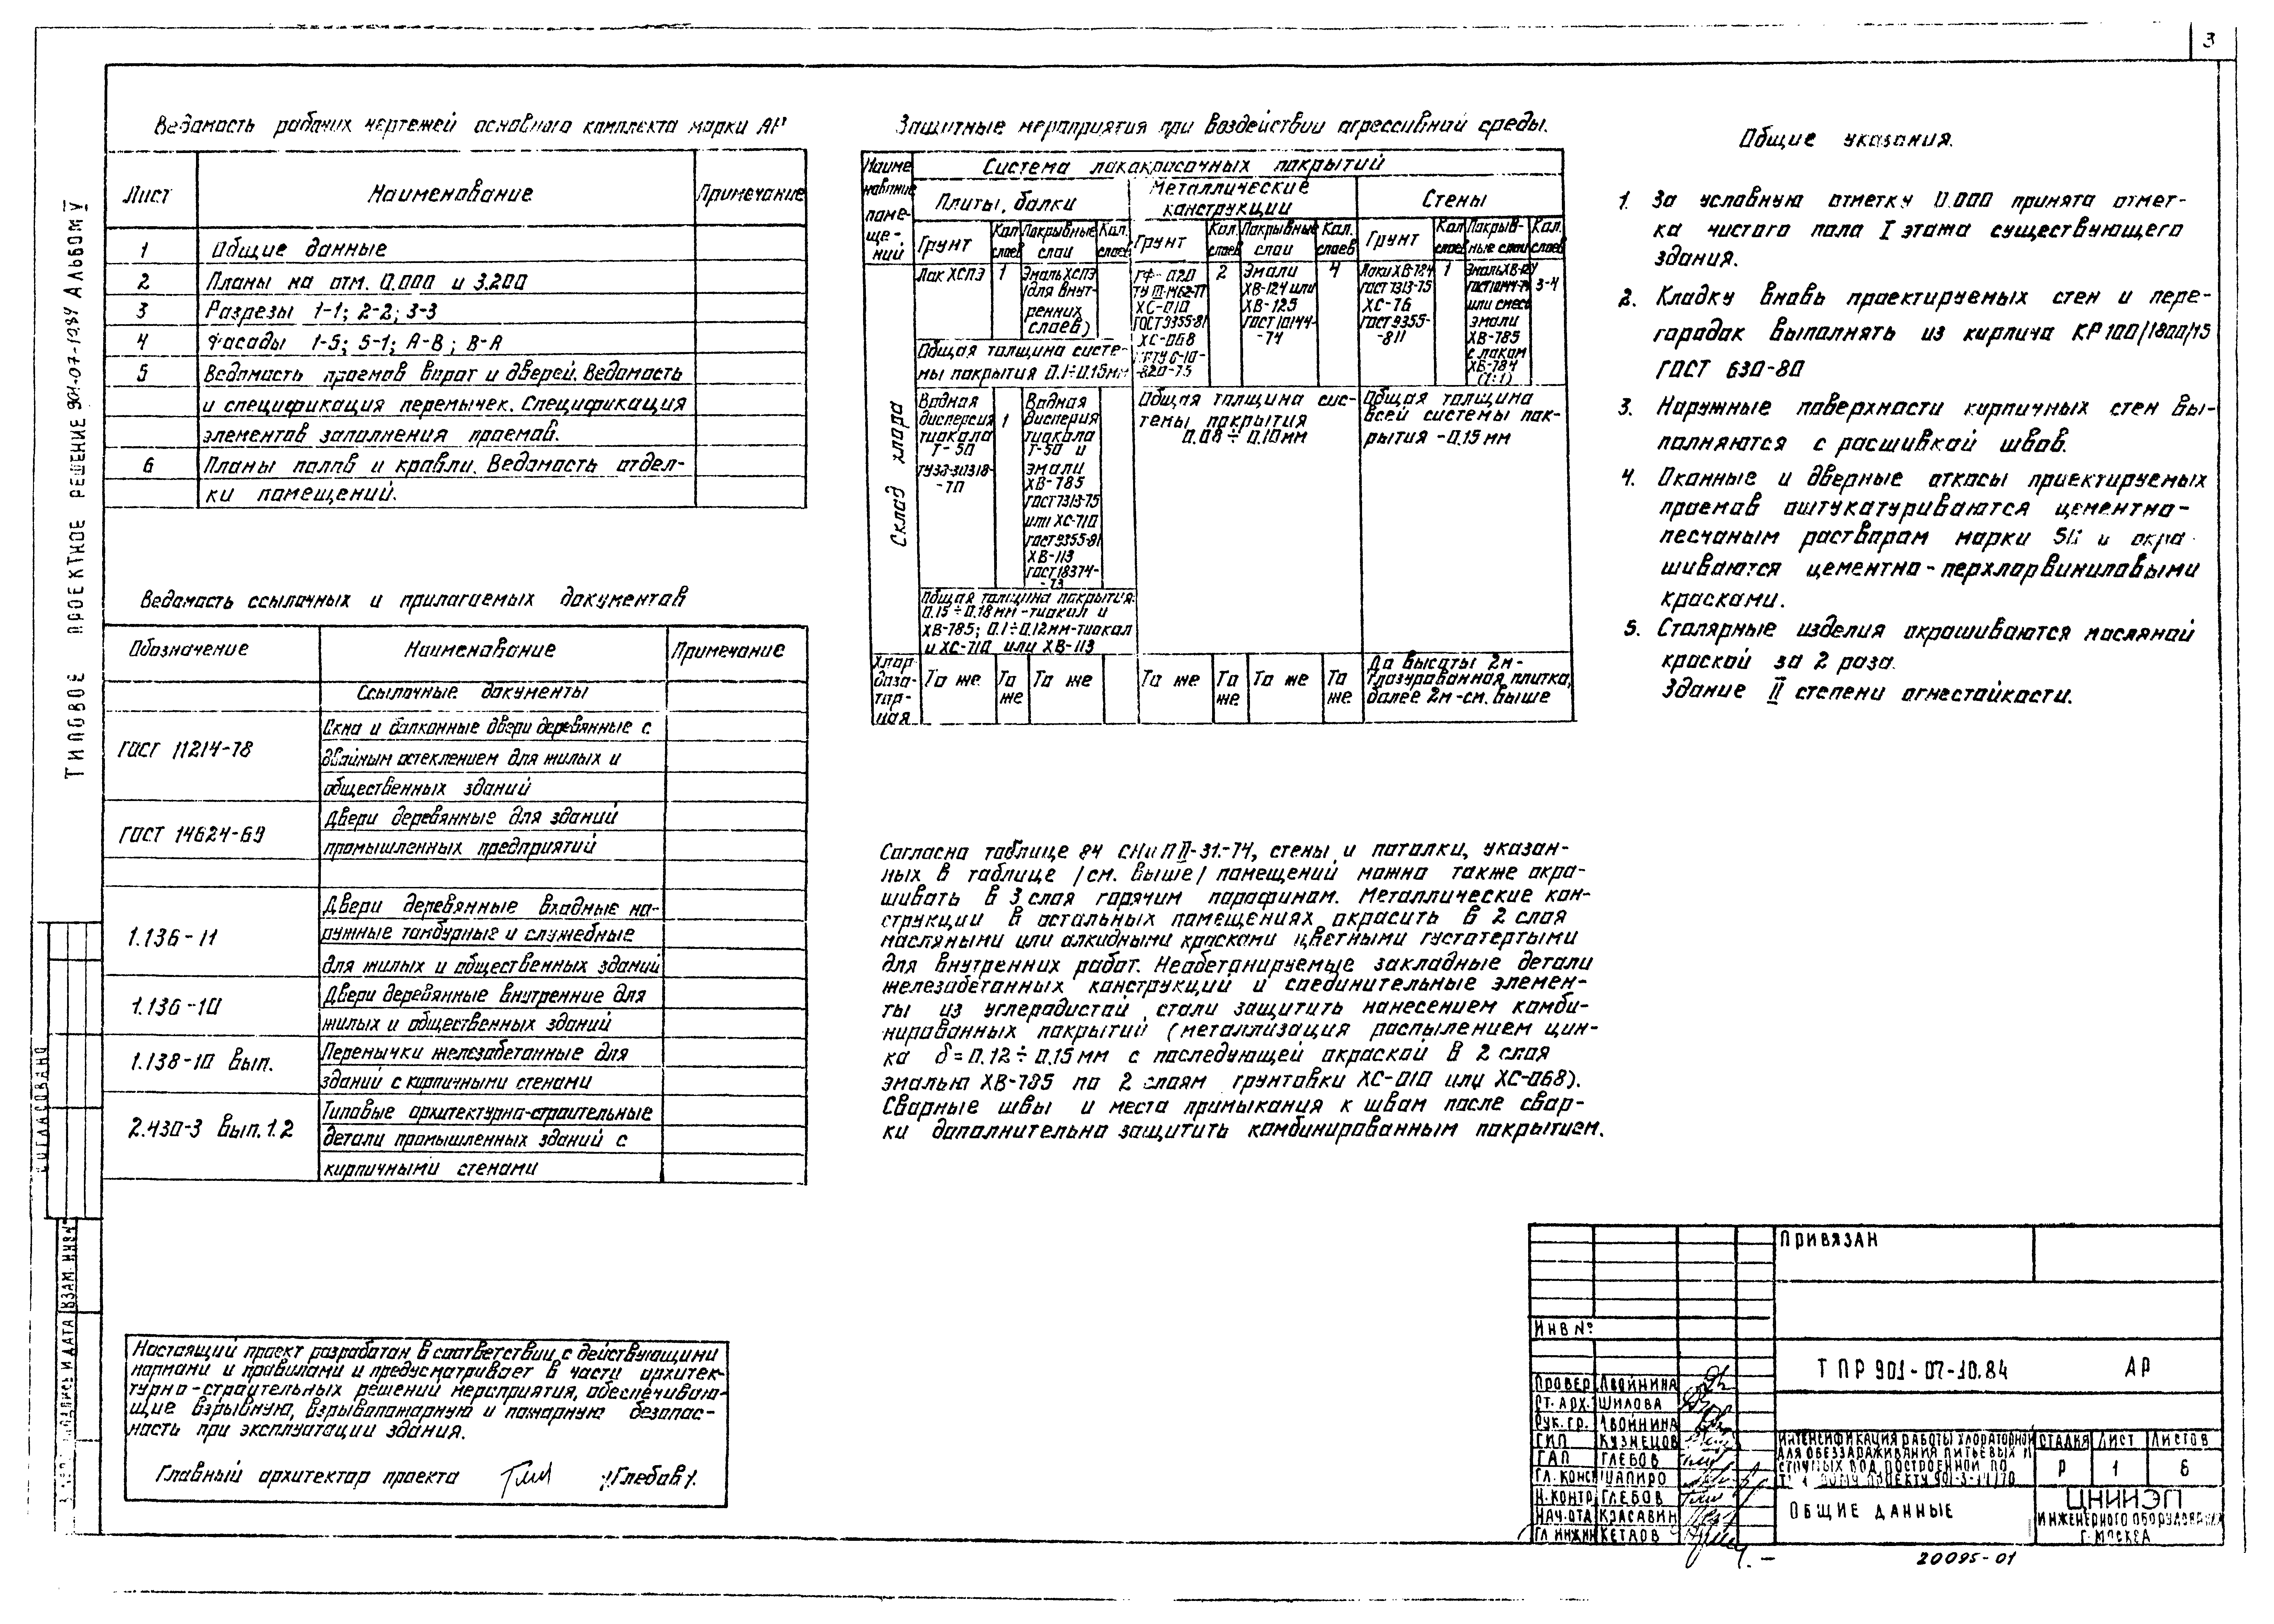 3
ТИПОВОЕ ПРОЕКТНОЕ РЕШЕНИЕ 901-07-10.84 АЛЬБОМ V
Ведомость рабочих чертежей основного комплекта марки АР
Лист Наименование Примечание
1 Общие данные
2 Планы на отм. 0.000 и 3.200
3 Разрезы 1-1; 2-2; 3-3
4 Фасады 1-5; 5-1; А-В; В-А
5 Ведомость проемов ворот и дверей. Ведомость
и спецификация перемычек. Спецификация
элементов заполнения проемов.
6 Планы полов и кровли. Ведомость отдел-
ки помещений.
Ведомость ссылочных и прилагаемых документов
Обозначение Наименование Примечание
Ссылочные документы
ГОСТ 11214-78
Окна и балконные двери деревянные с
двойным остеклением для жилых и
общественных зданий
ГОСТ 14624-69
Двери деревянные для зданий
промышленных предприятий
1.136-11
Двери деревянные входные на-
ружные тамбурные и служебные
для жилых и общественных зданий
1.136-10
Двери деревянные внутренние для
жилых и общественных зданий
1.138-10 Вып.
Перемычки железобетонные для
зданий с кирпичными стенами
2.430-3 Вып.1.2
Типовые архитектурно-строительные
детали промышленных зданий с
кирпичными стенами
Настоящий проект разработан в соответствии с действующими
нормами и правилами и предусматривает в части архитек-
турно-строительных решений мероприятия, обеспечиваю-
щие взрывную, взрывопожарную и пожарную безопас-
ность при эксплуатации здания.
Главный архитектор проекта /Глебов/.
Защитные мероприятия при воздействии агрессивной среды.
Наиме
нование
поме-
ще-
ний
Система лакокрасочных покрытий
Плиты, балки
Металлические
конструкции
Стены
Грунт
Кол.
слоев
Покрывные
слои
Кол.
слоев
Грунт
Кол.
слоев
Покрывные
слои
Кол.
слоев
Грунт
Кол.
слоев
Покрыв-
ные слои
Кол.
слоев
Склад хлора
Лак ХСПЭ
1
Эмаль ХСПЭ
(для внут-
ренних
слоев)
Общая толщина систе-
мы покрытия 0.1÷0.15мм
Водная
дисперсия
тиокола
Т-50
-70
1
Водная
дисперсия
тиокола
Т-50 и
эмали
ХВ-785
ГОСТ 7313-75
или ХС-710
ГОСТ 9355-81
ХВ-113
ГОСТ 18374-
-73
Общая толщина покрытия
0.15÷0.18мм-тиокол и
ХВ-785; 0.1÷0.12мм-тиокол
и ХС-710 или ХВ-113
ГФ-020
ХС-010
ГОСТ 9355-81
ХС-068
-820-75
2
Эмали
ХВ-124 или
ХВ-125
ГОСТ 10144-
-74
4
Общая толщина сис-
темы покрытия
0.08÷0.10мм
Лаки ХВ-784
ГОСТ 7313-75
ХС-76
ГОСТ 9355-
-811
1
Эмаль ХВ-124
ГОСТ 10144-74
или смесь
эмали
ХВ-785
с лаком
ХВ-784
(1:1)
3-4
Общая толщина
всей системы пок-
рытия -0.15 мм
Хлор
доза-
тор-
ная
То же
То
же
То же
То же
То
же
То же
То
же
До высоты 2м-
глазурованная плитка,
далее 2м-см. выше
Согласно таблице 84 СНиП II-31.-74, стены и потолки, указан-
ных в таблице /см. выше/ помещений можно также окра-
шивать в 3 слоя горячим парафином. Металлические кон-
струкции в остальных помещениях окрасить в 2 слоя
масляными или алкидными красками цветными густотертыми
для внутренних работ. Необетонируемые закладные детали
железобетонных конструкций и соединительные элемен-
ты из углеродистой стали защитить нанесением комби-
нированных покрытий (металлизация распылением цин-
ка δ=0.12÷0.15мм с последующей окраской в 2 слоя
эмалью ХВ-785 по 2 слоям грунтовки ХС-010 или ХС-068).
Сварные швы и места примыкания к швам после свар-
ки дополнительно защитить комбинированным покрытием.
Общие указания.
1. За условную отметку 0.000 принята отмет-
ка чистого пола I этажа существующего
здания.
2. Кладку вновь проектируемых стен и пере-
городок выполнять из кирпича КР 100/1800/15
ГОСТ 530-80
3. Наружные поверхности кирпичных стен вы-
полняются с расшивкой швов.
4. Оконные и дверные откосы проектируемых
проемов оштукатуриваются цементно-
песчаным раствором марки 50 и окра-
шиваются цементно-перхлорвиниловыми
красками.
5. Столярные изделия окрашиваются масляной
краской за 2 раза.
Здание II степени огнестойкости.
СОГЛАСОВАНО
ВЗАМ. ИНВ.№
ПОДПИСЬ И ДАТА
ПРИВЯЗАН
ИНВ №
ТПР 901-07-10.84 АР
ПРОВЕР ДВОЙНИНА
СТ. АРХ. ШИЛОВА
РУК. ГР. ДВОЙНИНА
ГИП КУЗНЕЦОВ
ГАП ГЛЕБОВ
ГЛ. КОНС ШАПИРО
Н.КОНТР ГЛЕБОВ
НАЧ.ОТД КРАСАВИН
ГЛ ИНЖИН КЕТАОВ
ИНТЕНСИФИКАЦИЯ РАБОТЫ ХЛОРАТОРНОЙ
ДЛЯ ОБЕЗЗАРАЖИВАНИЯ ПИТЬЕВЫХ И
СТОЧНЫХ ВОД ПОСТРОЕННОЙ ПО
ПРОЕКТУ 901-3-14/70
СТАДИЯ ЛИСТ ЛИСТОВ
Р 1 6
ОБЩИЕ ДАННЫЕ
ЦНИИЭП
ИНЖЕНЕРНОГО ОБОРУДОВАНИЯ
Г. МОСКВА
20095-01